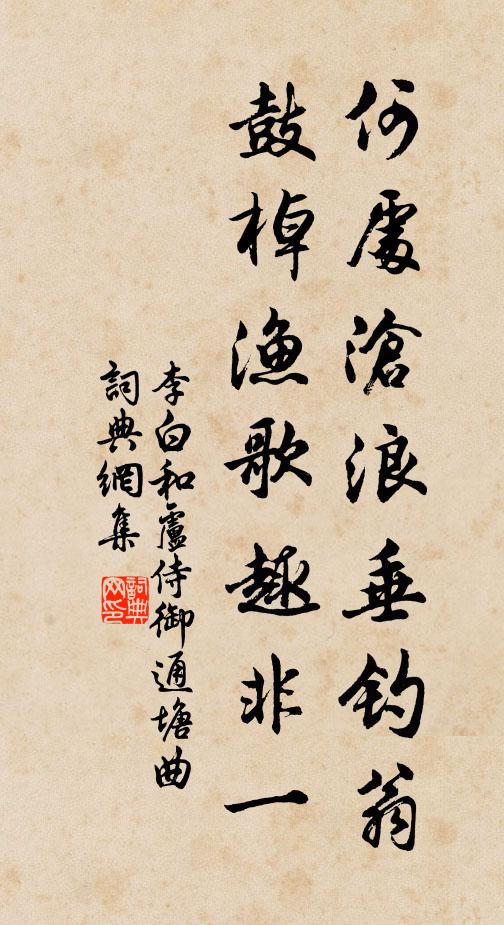 何處滄浪垂釣翁
鼓棹漁歌趣非一
李白和盧侍御通塘曲
詞典網集
詞典
网印